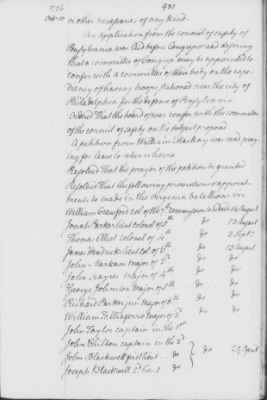 1776 421
Oct. 10 or other weapons of any kind.
An application from the council of safety of
Pensylvania was laid before Congress and read desiring
that a committee of Congress may be appointed to
confer with a committee of their body on the expe-
diency of having troops stationed near the city of
Philadelphia for the defence of Pensylvania
Ordered That the board of war confer with the committee
of the council of safety on the subject proposed
A petition from William Mackay was read pray-
ing for leave to return home
Resolved That the prayer of the petition be granted
Resolved That the following promotions & appoint-
ments be made in the Virginia battalions viz
William Crawford col of the 7th commission dated 14 August
Josiah Parker lieut colonel of 5th do 13 August
Thomas Elliot colonel of 4th do 3 Septr
James Hendricks lieut col of 6th do 13 August
John Markham major of 2d do do
John Sayres major of 4th do do
George Johnston major of 5th do do
Richard Parker jun major of 6th do do
William Taliaferro major of do do
John Taylor captain in the 1st
John Chilton captain in the 3d
John Blackwell first lieut. do do 29 April
Joseph Blackwell 2d lieut. do